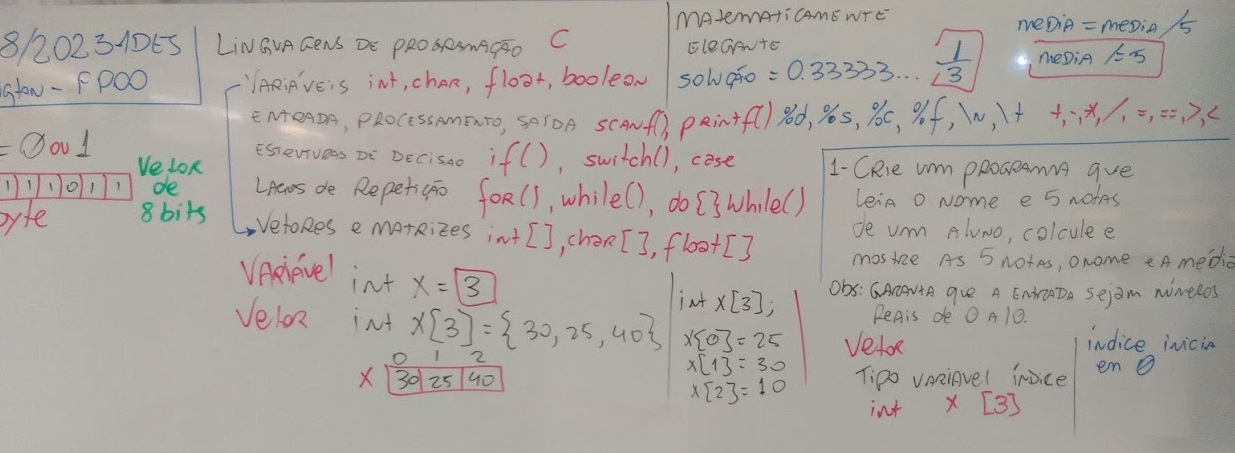 8/2023-1DES
gton - FPOO
= 0 ou 1
1 1 1 0 1 1
byte
Vetor
de
8 bits
LINGUAGENS DE PROGRAMAÇÃO C
VARIÁVEIS int, char, float, boolean
ENTRADA, PROCESSAMENTO, SAÍDA scanf(), printf() %d, %s, %c, %f, \n, \t +,-,*,/,=,==,>,<
ESTRUTURAS DE DECISÃO if(), switch(), case
LAÇOS de Repetição for(), while(), do{}while()
Vetores e MATRIZES int[], char[], float[]
VARIÁVEL int X = 3
Vetor int X[3] = {30, 25, 40}
0 1 2
X 30 25 40
int X[3];
x[0]=25
x[1]=30
x[2]=10
MATEMATICAMENTE
ELEGANTE
SOLUÇÃO = 0.33333... 1/3
MEDIA = MEDIA /5
MEDIA /=5
1- CRIE um PROGRAMA que
LEIA O NOME e 5 NOTAS
de um ALUNO, CALCULE e
MOSTRE AS 5 NOTAS, O NOME e A MÉDIA
Obs: GARANTA que A ENTRADA sejam NÚMEROS
REAIS de 0 A 10.
Vetor
TIPO VARIAVEL ÍNDICE
int X [3]
índice inicia
em 0